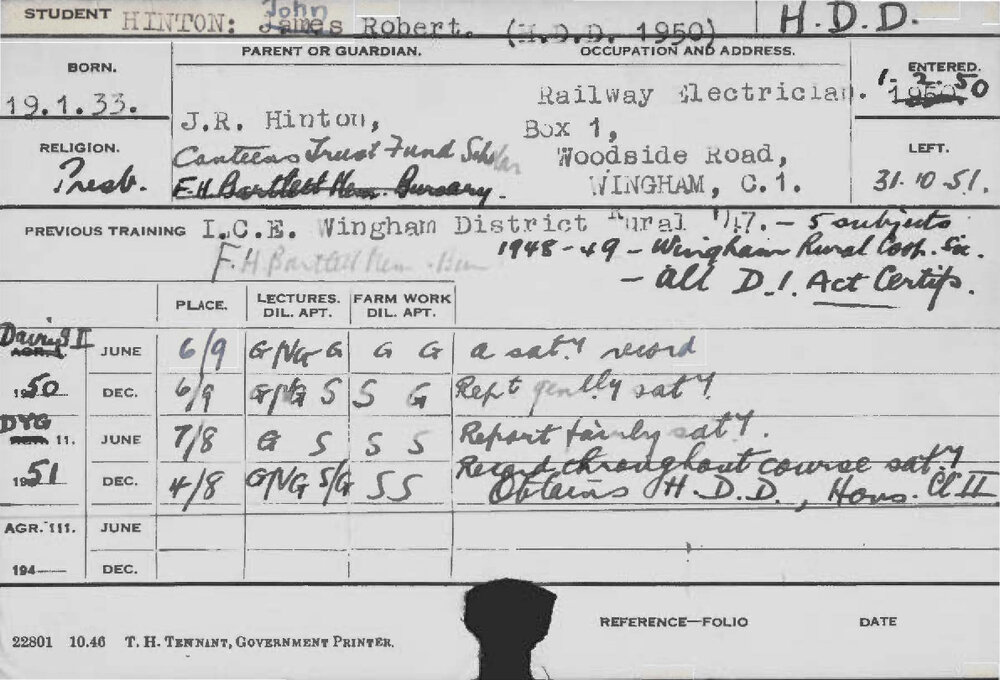 STUDENT HINTON: James John Robert. (H.D.D. 1950) H.D.D.
PARENT OR GUARDIAN. OCCUPATION AND ADDRESS.
BORN. ENTERED.
19.1.33. Railway Electrician. 1950 1. 2. 50
J.R. Hinton, Box 1,
RELIGION. Canteens Trust Fund Scholar Woodside Road, LEFT.
Presb. F.H Bartlett Mem. Bursary. WINGHAM, C.1. 31.10.51.
PREVIOUS TRAINING I.C.E. Wingham District Rural '47. - 5 subjects
F.H Bartlett Mem. Bur 1948-49 - Wingham Rural Coop. Soc.
- all D.I. Act Certifs.
PLACE. LECTURES. DIL. APT. FARM WORK DIL. APT.
Dairy II AGR. I. JUNE 6/9 G/NG G G G a sat.y record
1950 DEC. 6/9 G/NG S S G Rept genlly saty.
DYG AGR. 11. JUNE 7/8 G S S S Report fairly saty.
1951 DEC. 4/8 G/NG S/G S S Record throughout course sat.y
Obtains H.D.D., Hons. Cl II
AGR. 111. JUNE
194— DEC.
REFERENCE—FOLIO DATE
22801 10.46 T. H. TENNANT, GOVERNMENT PRINTER.